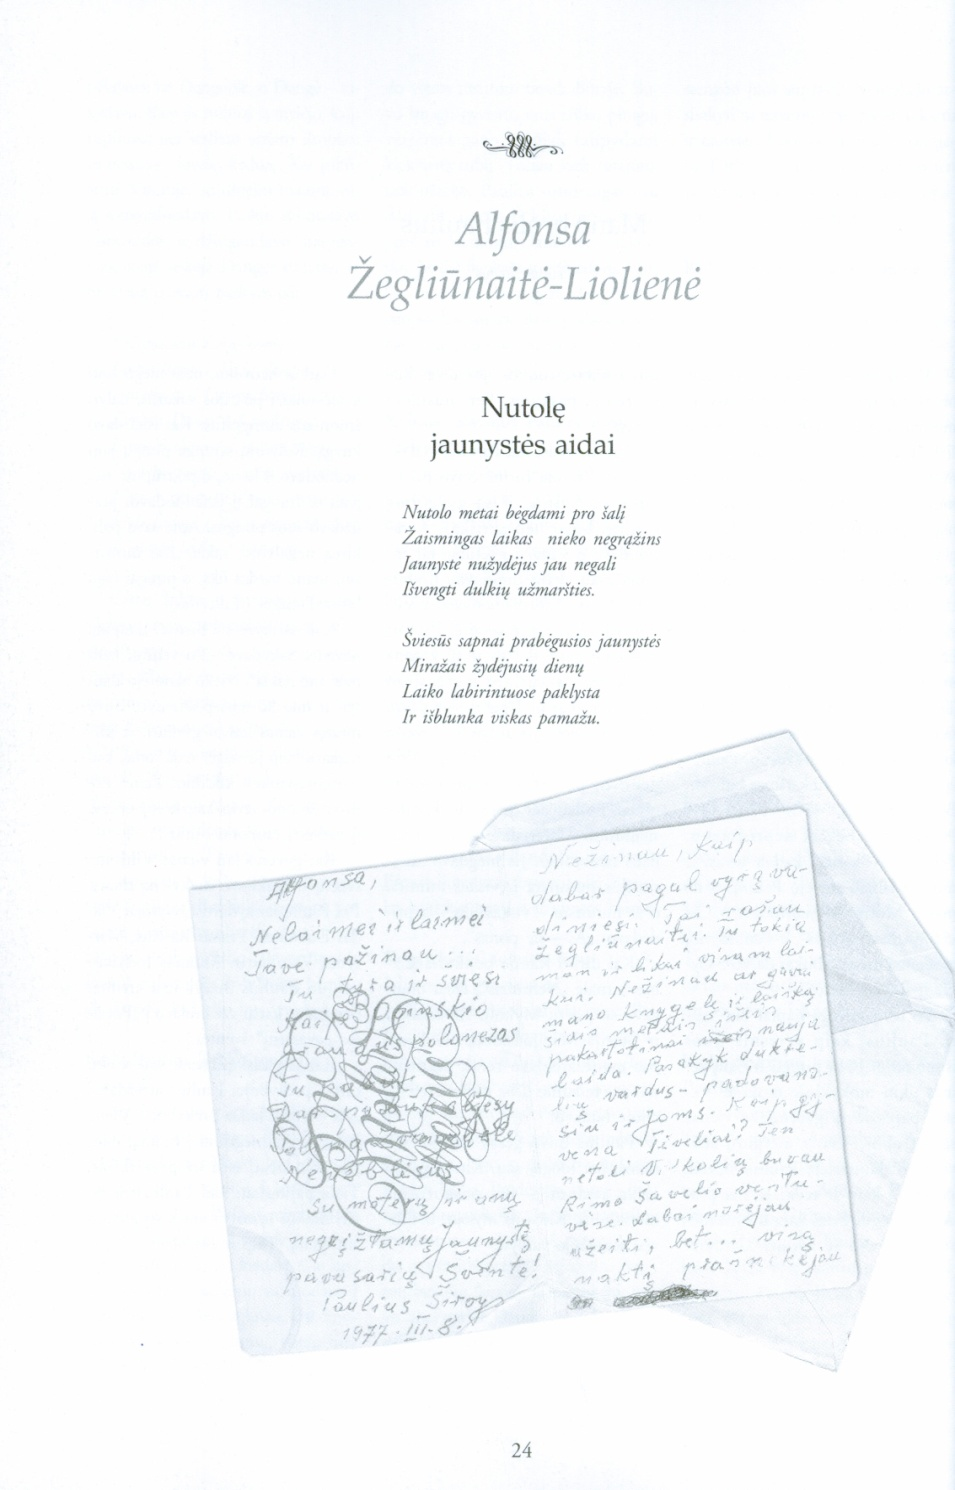 Alfonsa
Žegliūnaitė-Liolienė
Nutolę
jaunystės aidai
Nutolo metai bėgdami pro šalį
Žaismingas laikas nieko negrąžins
Jaunystė nužydėjus jau negali
Išvengti dulkių užmaršties.
Šviesūs sapnai prabėgusios jaunystės
Miražais žydėjusių dienų
Laiko labirintuose paklysta
Ir išblunka viskas pamažu.
Alfonsa,
Nelaimei ir laimei
Tave pažinau...
Tu tyra ir šviesi
Kaip Oginskio
polonezas
Tu
Dar
Su moterų ir anų
negrįžtamų Jaunystę
pavasarių Švente!
Paulius Širvys
1977-III-8.
Nežinau, kaip
dabar pagal vyrą va-
diniesi. Tai rašau
Žegliūnaitei. Tu tokia
man ir likai visam lai-
kui. Nežinau ar gavai
mano knygelę ir laišką
šiais metais išeis
pakartotinai nauja
laida. Pasakyk dukre-
lių vardus - padovano-
siu ir Joms. Kaip gy-
vena Tėveliai? Ten
netoli buvau
Rimo Šavelio vestu-
vėse. Labai norėjau
užeiti, bet... visą
naktį prašnekėjau
24